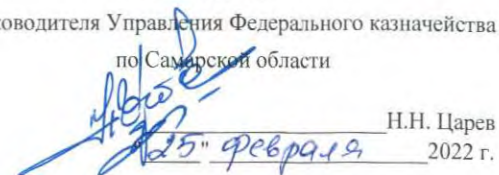 ководителя Управления Федерального казначейства
по Самарской области
Н.Н. Царев
25 " февраля 2022 г.